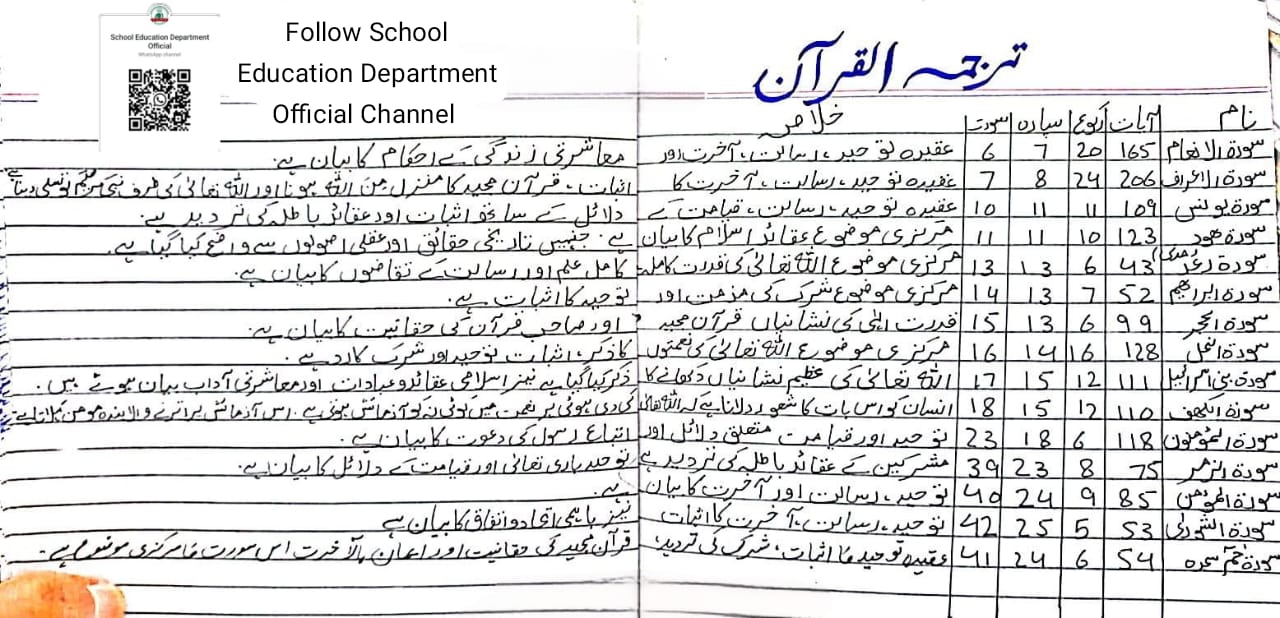 School Education Department
Official
WhatsApp channel
Follow School
Education Department
Official Channel
ترجمہ القرآن
نام آیات رکوع سپارہ سورت خلاصہ
سورۃ الانعام 165 20 7 6 عقیدہ توحید، رسالت، آخرت اور معاشرتی زندگی کے احکام کا بیان ہے۔
سورۃ الاعراف 206 24 8 7 عقیدہ توحید، رسالت، آخرت کا اثبات، قرآن مجید کا منزل من اللہ ہونا اور اللہ تعالیٰ کی طرف نبی کریم کو تسلی دینا ہے
سورۃ یونس 109 11 11 10 عقیدہ توحید، رسالت، قیامت کے دلائل کے ساتھ اثبات اور عقائد باطلہ کی تردید ہے۔
سورۃ ھود 123 10 11 11 مرکزی موضوع عقائد اسلام کا بیان ہے۔ جنہیں تاریخی حقائق اور عقلی اصولوں سے واضح کیا گیا ہے۔
سورۃ رعد 43 6 13 13 مرکزی موضوع اللہ تعالیٰ کی قدرت کاملہ کامل علم اور رسالت کے تقاضوں کا بیان ہے۔
سورۃ ابراھیم 52 7 13 14 مرکزی موضوع شرک کی مذمت اور توحید کا اثبات ہے۔
سورۃ الحجر 99 6 13 15 قدرت الہٰی کی نشانیاں قرآن مجید اور صاحب قرآن کی حقانیت کا بیان ہے۔
سورۃ النحل 128 16 14 16 مرکزی موضوع اللہ تعالیٰ کی نعمتوں کا ذکر، اثبات توحید اور شرک کا رد ہے۔
سورۃ بنی اسرائیل 111 12 15 17 اللہ تعالیٰ کی عظیم نشانیاں دکھانے کا ذکر کیا گیا ہے نیز اسلامی عقائد و عبادات اور معاشرتی آداب بیان ہوئے ہیں۔
سورۃ الکھف 110 12 15 18 انسان کو اس بات کا شعور دلانا ہے کہ اللہ تعالیٰ کی دی ہوئی ہر نعمت میں کوئی نہ کوئی آزمائش ہوتی ہے۔ اس آزمائش پر اترنے والا بندہ مومن کہلاتا ہے
سورۃ المؤمنون 118 6 18 23 توحید اور قیامت متعلق دلائل اور اتباع رسول کی دعوت کا بیان ہے۔
سورۃ الزمر 75 8 23 39 مشرکین کے عقائد باطلہ کی تردید ہے توحید باری تعالیٰ اور قیامت کے دلائل کا بیان ہے۔
سورۃ المؤمن 85 9 24 40 توحید، رسالت اور آخرت کا بیان ہے۔
سورۃ الشوریٰ 53 5 25 42 توحید، رسالت، آخرت کا اثبات نیز باہمی اتحاد و اتفاق کا بیان ہے
سورۃ حٰمٓ سجدہ 54 6 24 41 عقیدہ توحید کا اثبات، شرک کی تردید، قرآن مجید کی حقانیت اور ایمان بالآخرت اس سورت کا مرکزی موضوع ہے۔